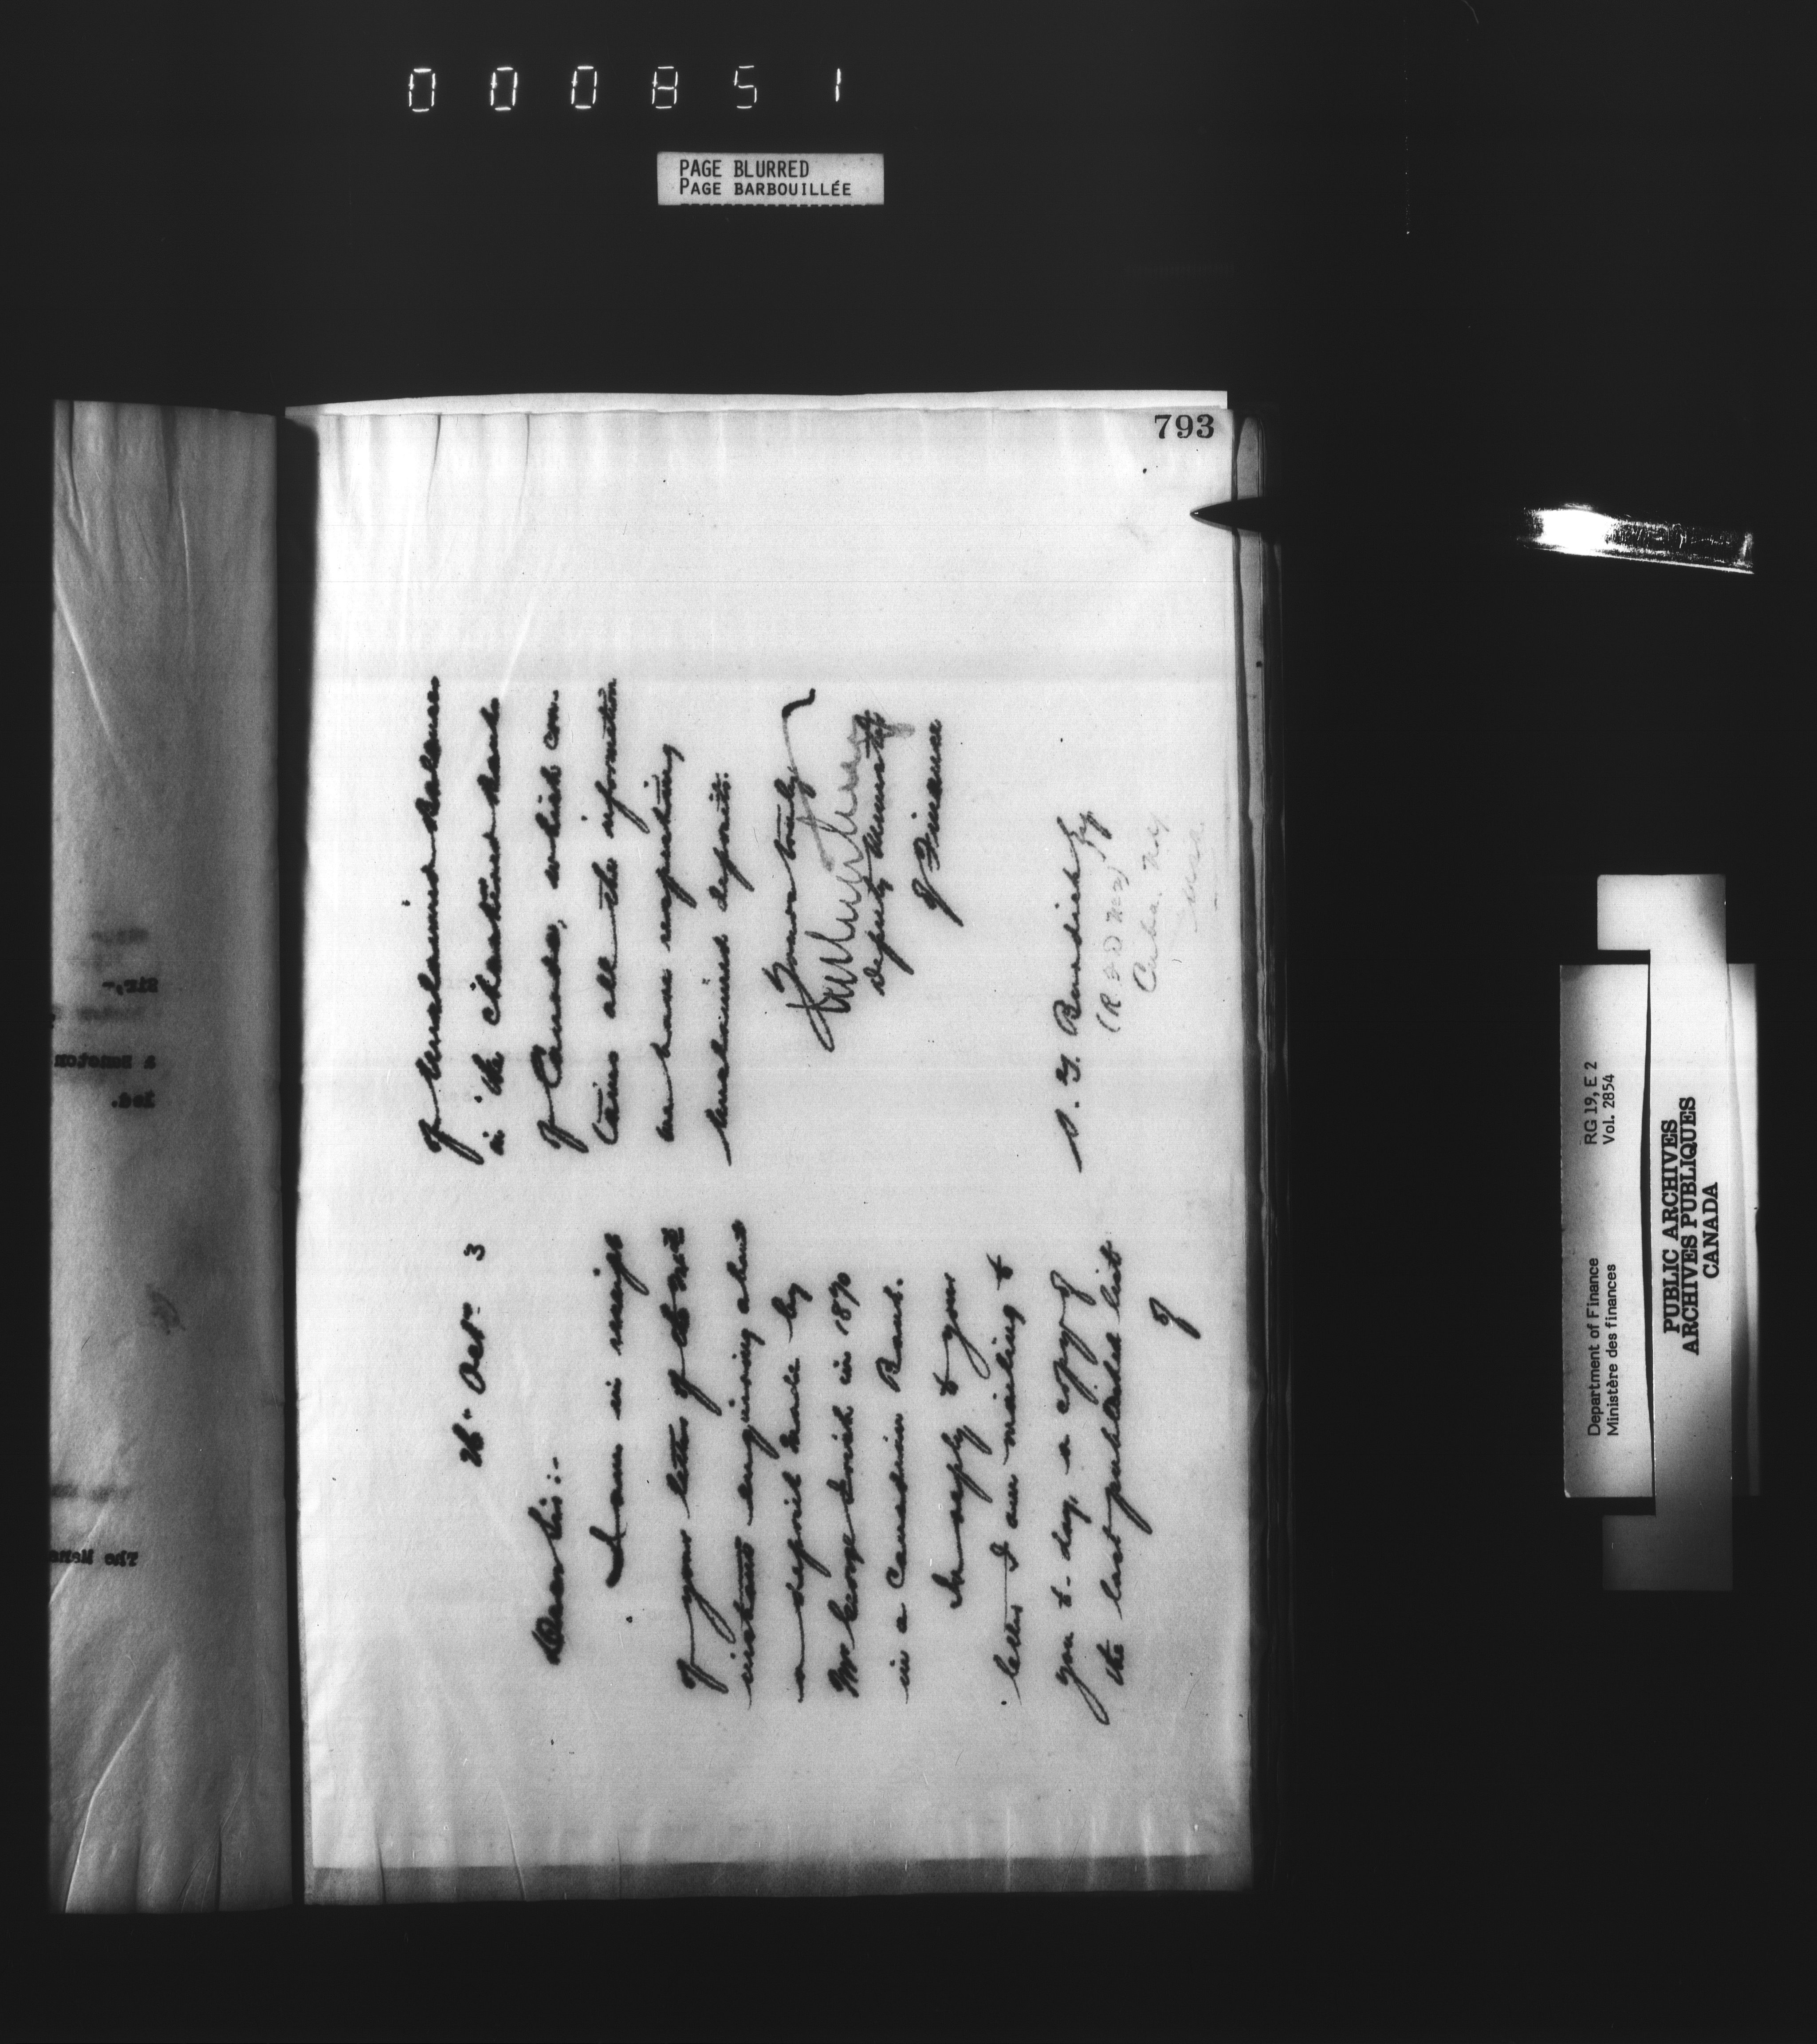 000851
PAGE BLURRED
PAGE BARBOUILLÉE
793
Octr 3
Dear Sir:-
I am in receipt
of your letter of the
instant enquiring about
a deposit made by
Mr George Smith in 1890
in a Canadian Bank.
In reply to your
letter I am mailing to
you to-day, a copy of
the last published list
of
of Unclaimed Balances
in the Chartered Banks
of Canada, which con-
tains all the information
we have respecting
unclaimed deposits.
Yours truly
Deputy Minister
of Finance
Benedict Esq
(R F D No 2)
Cuba. N.Y.
U.S.A.
Sir,-
The
Department of Finance RG 19, E 2
Ministère des finances Vol. 2854
PUBLIC ARCHIVES
ARCHIVES PUBLIQUES
CANADA